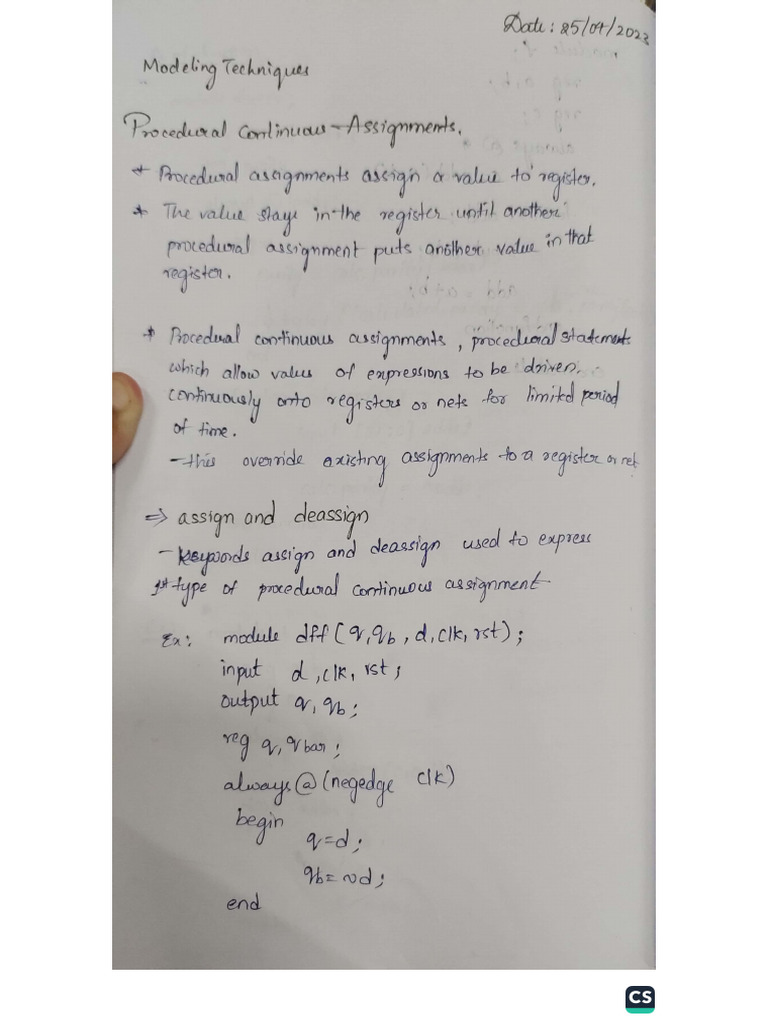 Date: 25/04/2023
Modeling Techniques
Procedural Continuous-Assignments.
* Procedural assignments assign a value to register.
* The value stays in the register until another
procedural assignment puts another value in that
register.
* Procedural continuous assignments, procedural statements
which allow values of expressions to be driven.
continuously onto registers or nets for limited period
of time.
- this override existing assignments to a register or net
⇒ assign and deassign
- keywords assign and deassign used to express
1st type of procedural continuous assignment
Ex: module dff(q,qb,d,clk,rst);
input d,clk,rst;
output q,qb;
reg q,qbar;
always@(negedge clk)
begin
q=d;
qb=~d;
end
CS